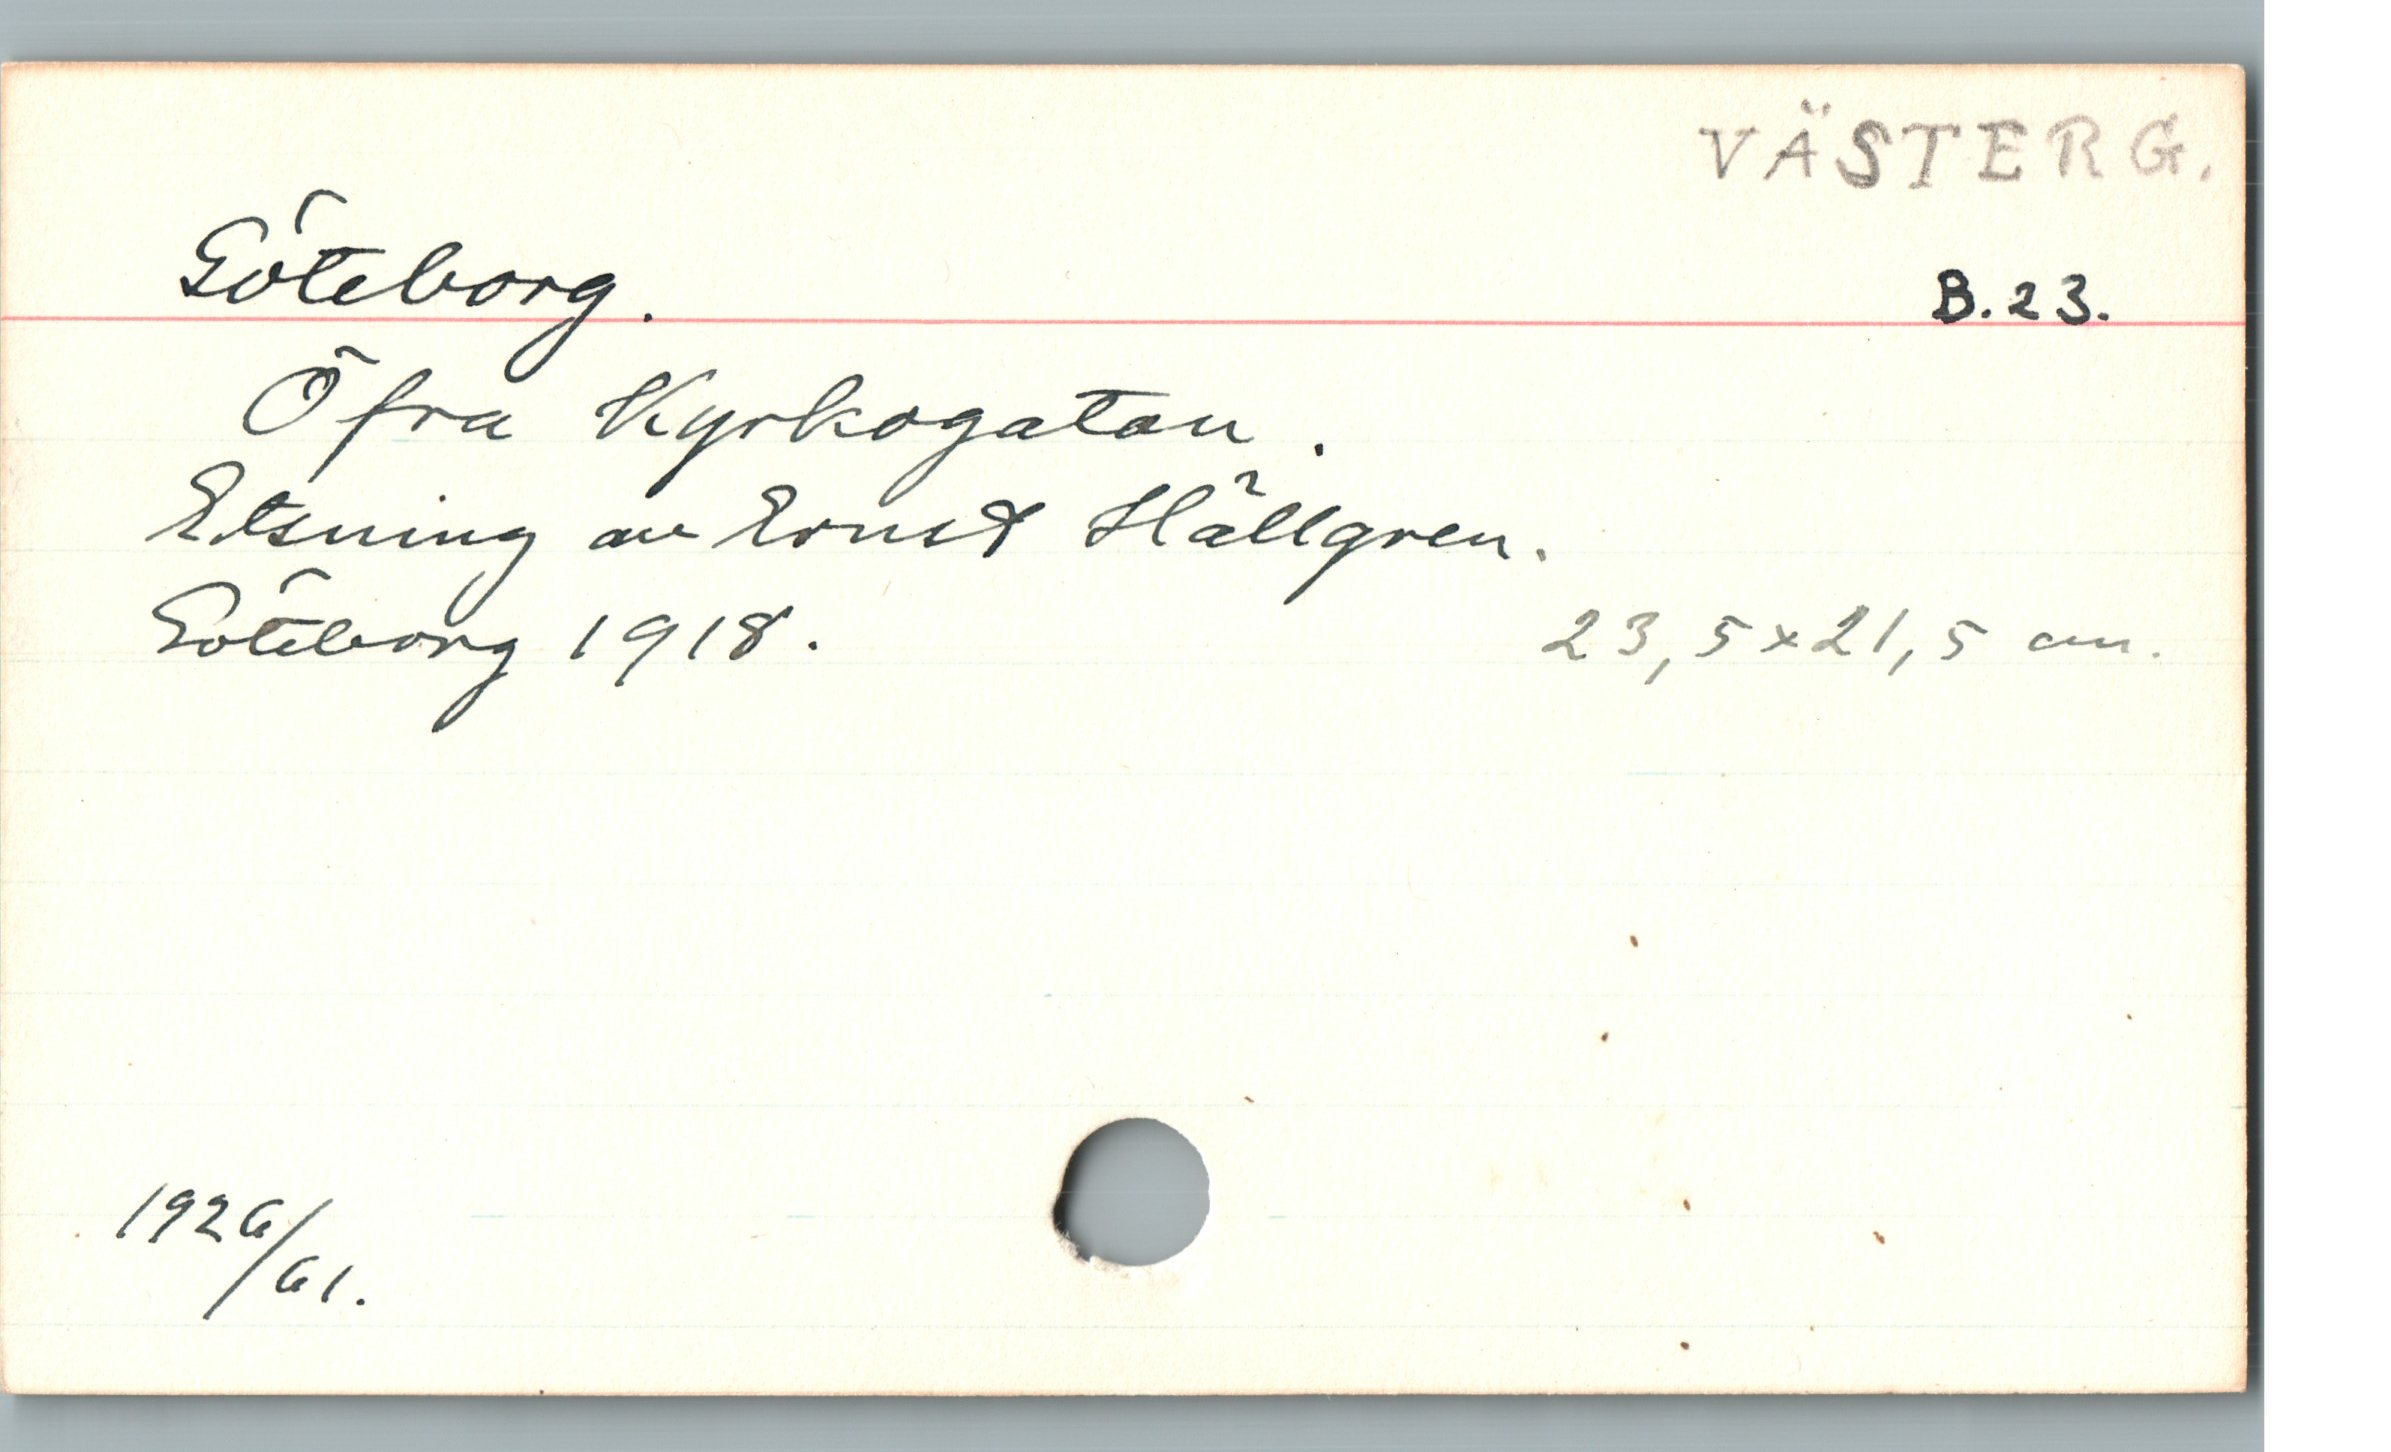 VÄSTERG.
Göteborg.
B.23.
Öfra Kyrkogatan.
Etsning av Ernst Hällgren.
Göteborg 1918.
23,5x21,5 cm.
1926/
61.